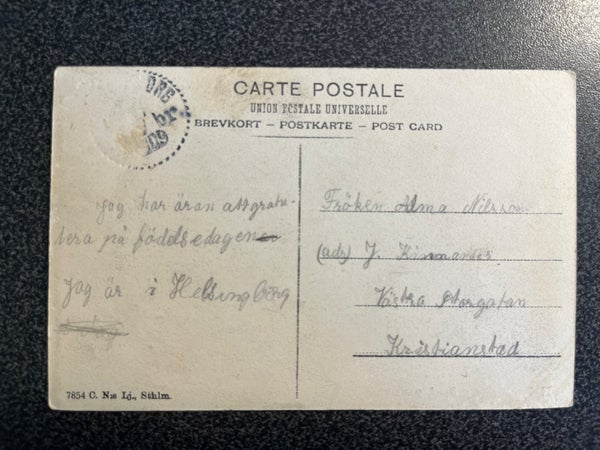 CARTE POSTALE
UNION POSTALE UNIVERSELLE
BREVKORT – POSTKARTE – POST CARD
ORG
br
909
Jag har äran att gratu-
lera på födelsedagen
Jag är i Helsingborg
Fröken Alma Nilsson
(adr) J.
Västra Storgatan
Kristianstad
7854 C. N:s Lj., Sthlm.